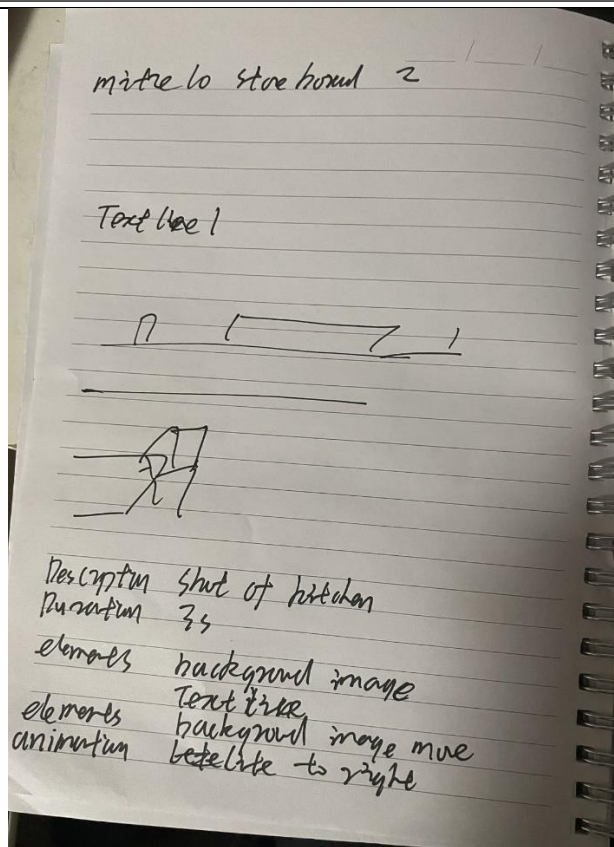 storeboard 2
Text line 1
Description shot of kitchen
Duration 3s
elements background image
Text line
elements background image move
animation to right